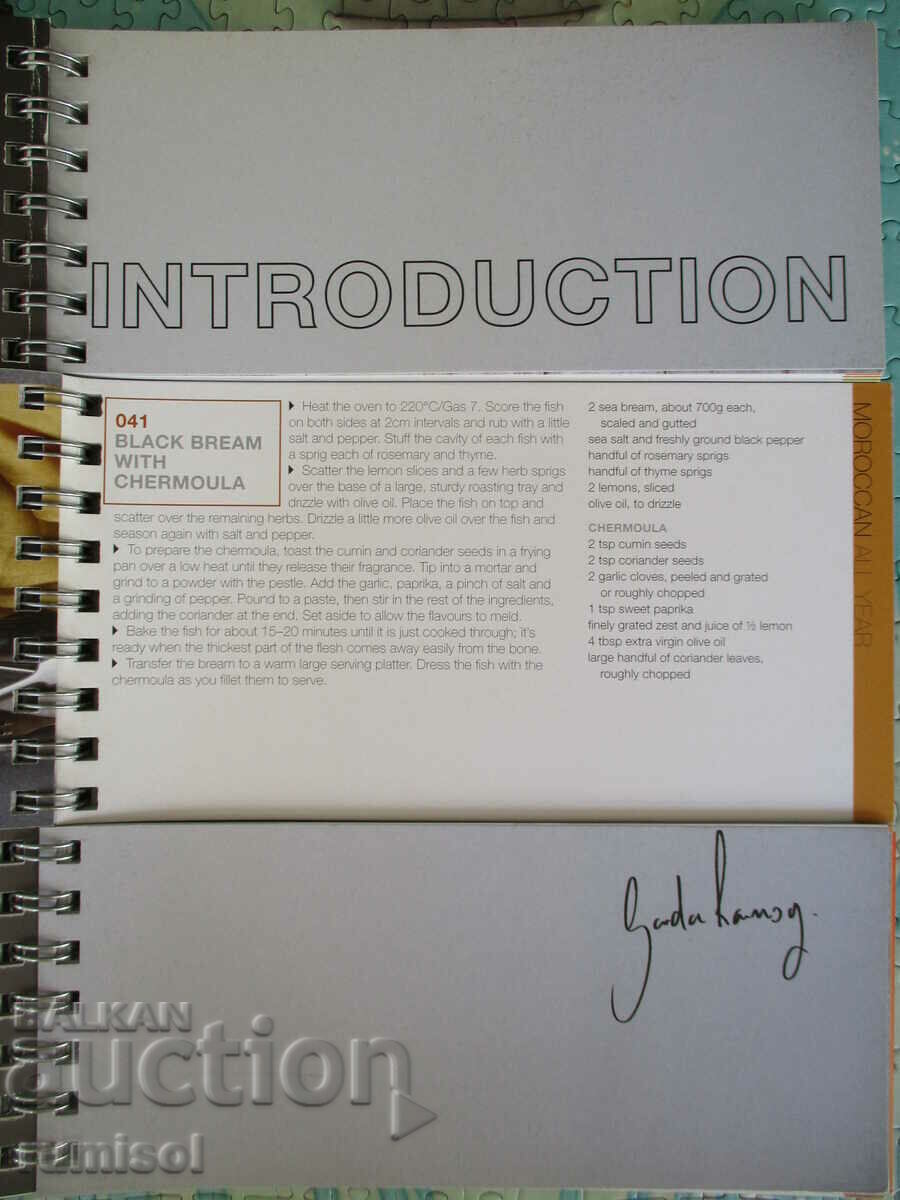 INTRODUCTION
041
BLACK BREAM
WITH
CHERMOULA
▶ Heat the oven to 220°C/Gas 7. Score the fish
on both sides at 2cm intervals and rub with a little
salt and pepper. Stuff the cavity of each fish with
a sprig each of rosemary and thyme.
▶ Scatter the lemon slices and a few herb sprigs
over the base of a large, sturdy roasting tray and
drizzle with olive oil. Place the fish on top and
scatter over the remaining herbs. Drizzle a little more olive oil over the fish and
season again with salt and pepper.
▶ To prepare the chermoula, toast the cumin and coriander seeds in a frying
pan over a low heat until they release their fragrance. Tip into a mortar and
grind to a powder with the pestle. Add the garlic, paprika, a pinch of salt and
a grinding of pepper. Pound to a paste, then stir in the rest of the ingredients,
adding the coriander at the end. Set aside to allow the flavours to meld.
▶ Bake the fish for about 15–20 minutes until it is just cooked through; it's
ready when the thickest part of the flesh comes away easily from the bone.
▶ Transfer the bream to a warm large serving platter. Dress the fish with the
chermoula as you fillet them to serve.
2 sea bream, about 700g each,
scaled and gutted
sea salt and freshly ground black pepper
handful of rosemary sprigs
handful of thyme sprigs
2 lemons, sliced
olive oil, to drizzle
CHERMOULA
2 tsp cumin seeds
2 tsp coriander seeds
2 garlic cloves, peeled and grated
or roughly chopped
1 tsp sweet paprika
finely grated zest and juice of ½ lemon
4 tbsp extra virgin olive oil
large handful of coriander leaves,
roughly chopped
MOROCCAN ALL YEAR
Gordon Ramsay.
BALKAN
auction
rumisol